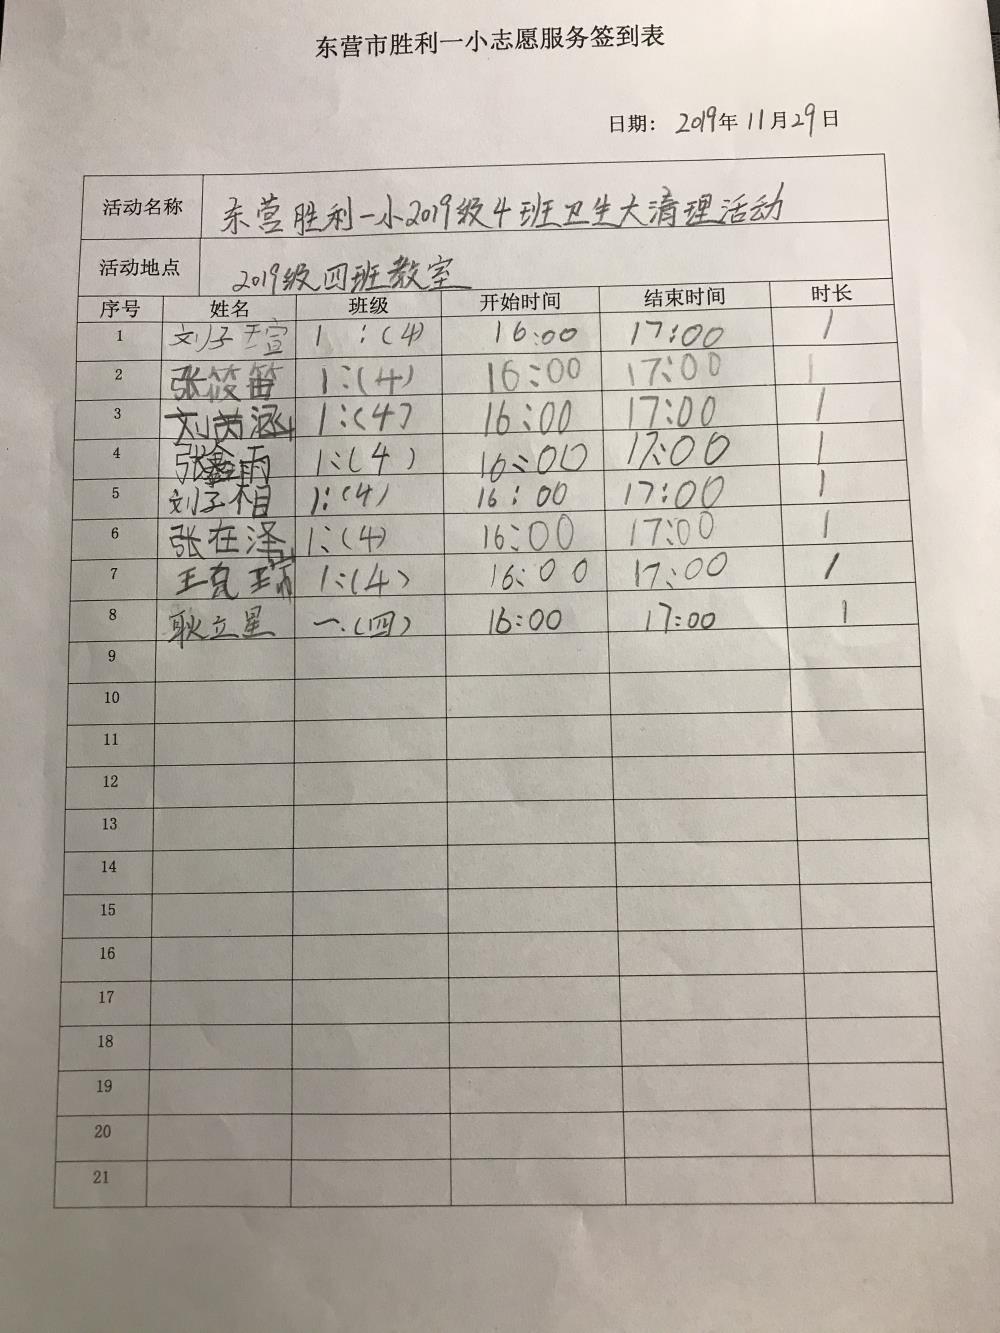 东营市胜利一小志愿服务签到表
日期： 2019年 11月29日
活动名称 东营胜利一小2019级4班卫生大清理活动
活动地点 2019级四班教室
序号 姓名 班级 开始时间 结束时间 时长
1 刘子瑄 1:(4) 16:00 17:00 1
2 张筱笛 1:(4) 16:00 17:00 1
3 刘芮涵 1:(4) 16:00 17:00 1
4 张鑫雨 1:(4) 16:00 17:00 1
5 刘子相 1:(4) 16:00 17:00 1
6 张在泽 1:(4) 16:00 17:00 1
7 王克 1:(4) 16:00 17:00 1
8 耿立星 一.(四) 16:00 17:00 1
9
10
11
12
13
14
15
16
17
18
19
20
21